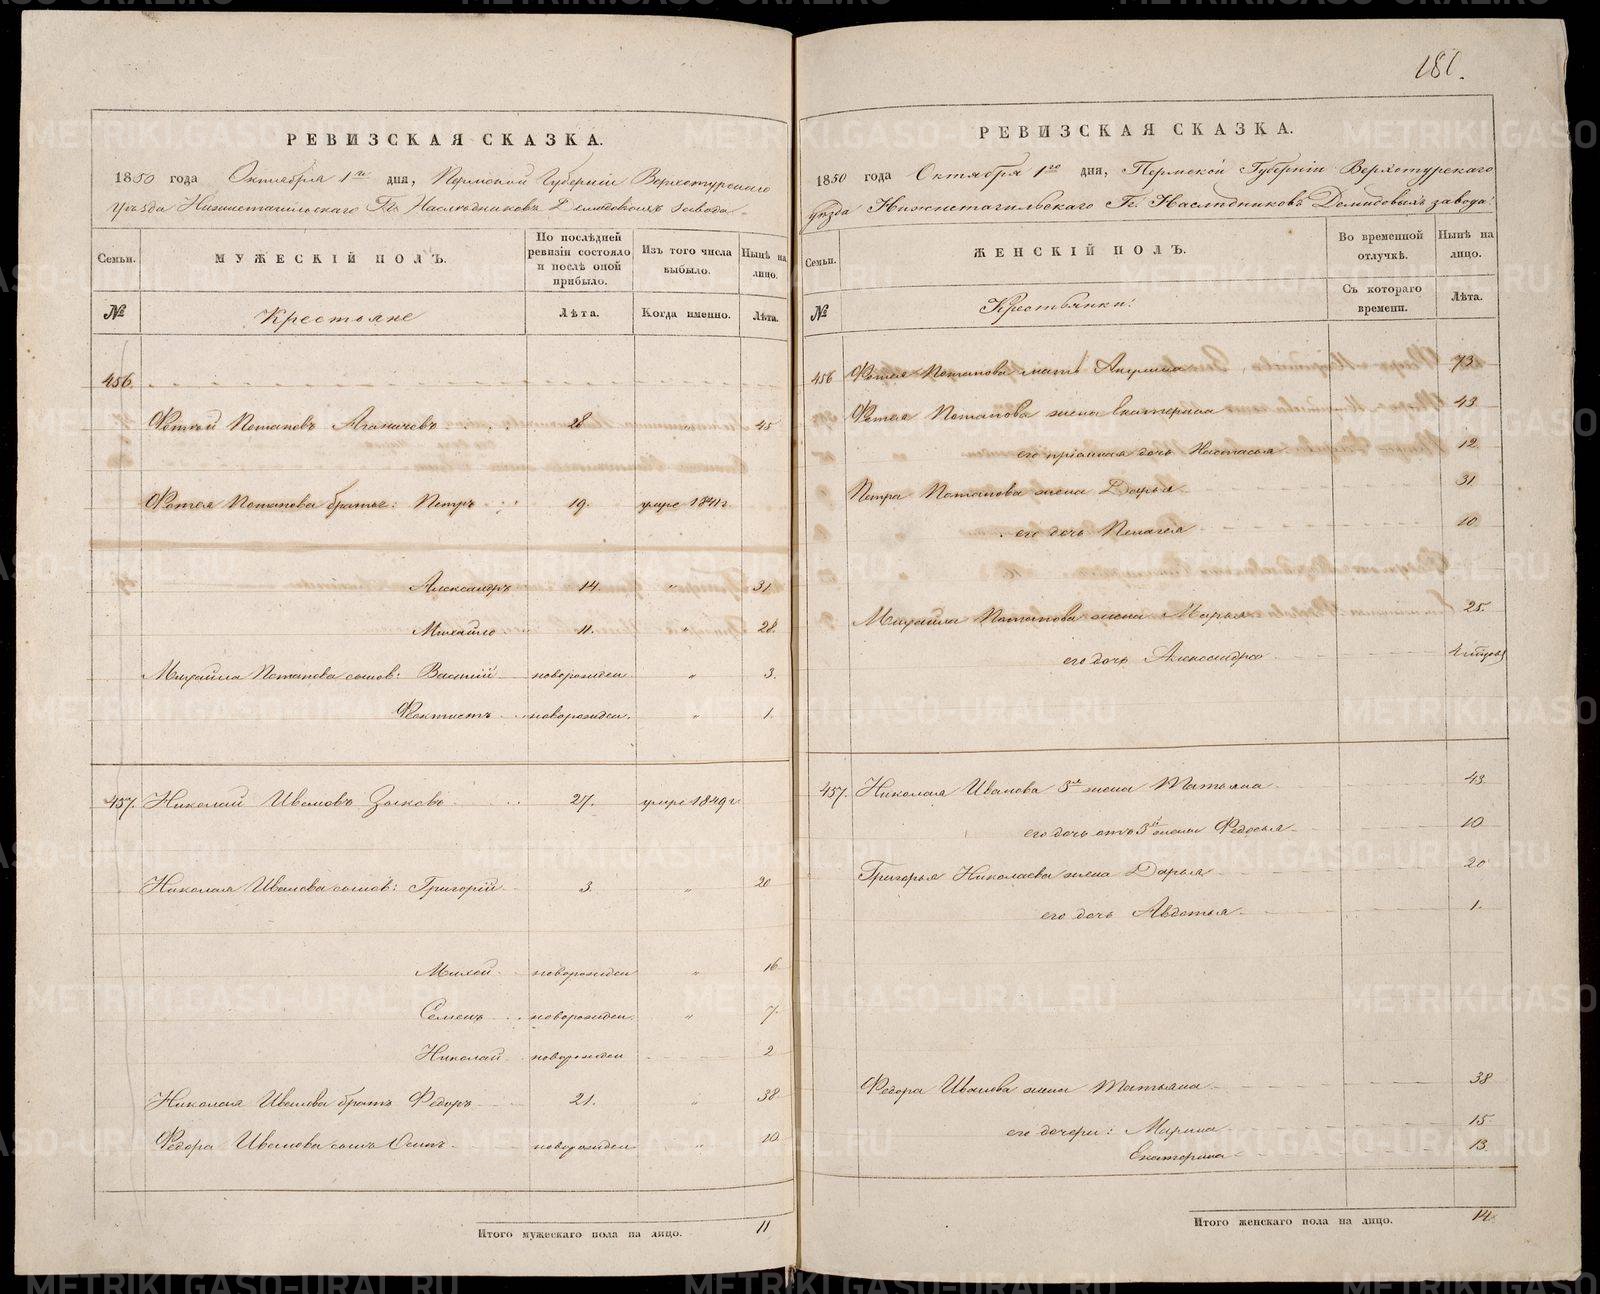 181.
РЕВИЗСКАЯ СКАЗКА.
1850 года Октября 1го дня, Пермской Губерніи Верхотурскаго
уѣзда Нижнетагильскаго Гг. Наслѣдниковъ Демидовыхъ завода.
Семьи. МУЖЕСКІЙ ПОЛЪ. По послѣдней ревизіи состояло и послѣ оной прибыло. Изъ того числа выбыло. Нынѣ на лицо.
№ Крестьяне Лѣта. Когда именно. Лѣта.
456.
Фотѣй Потаповъ 28 " 45
Фотея Потапова братья: Петръ 19. умре 1841г.
Александръ 14. " 31
Михайло 11. " 28.
Михайла Потапова сынов: Василій новорожден " 3.
Фектистъ новорожден. " 1.
457. Николай Ивановъ Зыковъ 27. умре 1849г
Николая Иванова сынов: Григорій 3. " 20
Михей новорожден " 16
Семенъ новорожден. " 7.
Николай новорожден 2
Николая Иванова братъ Федоръ 21. " 38
Федора Иванова сынъ Осипъ новорожден " 10.
Итого мужескаго пола на лицо. 11
РЕВИЗСКАЯ СКАЗКА.
1850 года Октября 1го дня, Пермской Губерніи Верхотурскаго
уѣзда Нижнетагильскаго Гг. Наслѣдниковъ Демидовыхъ завода.
Семьи. ЖЕНСКІЙ ПОЛЪ. Во временной отлучкѣ. Нынѣ на лицо.
№ Крестьянки: Съ котораго времени. Лѣта.
456 Фотея Потапова мать Акулина 73
Фотея Потапова жена Екатерина 43
его пріемная дочь Настасья 12.
Петра Потапова жена Дарья 31.
его дочь Пелагея 10
Михайла Потапова жена Марья 25.
его дочь Александра
457. Николая Иванова 3я жена Татьяна 43
его дочь отъ 3й жены Федосья 10
Григорья Николаева жена Дарья 20
его дочь Авдотья 1.
Федора Иванова жена Татьяна 38
его дочери: Марина 15
Екатерина 13.
Итого женскаго пола на лицо. 14.
METRIKI.GASO-URAL.RU